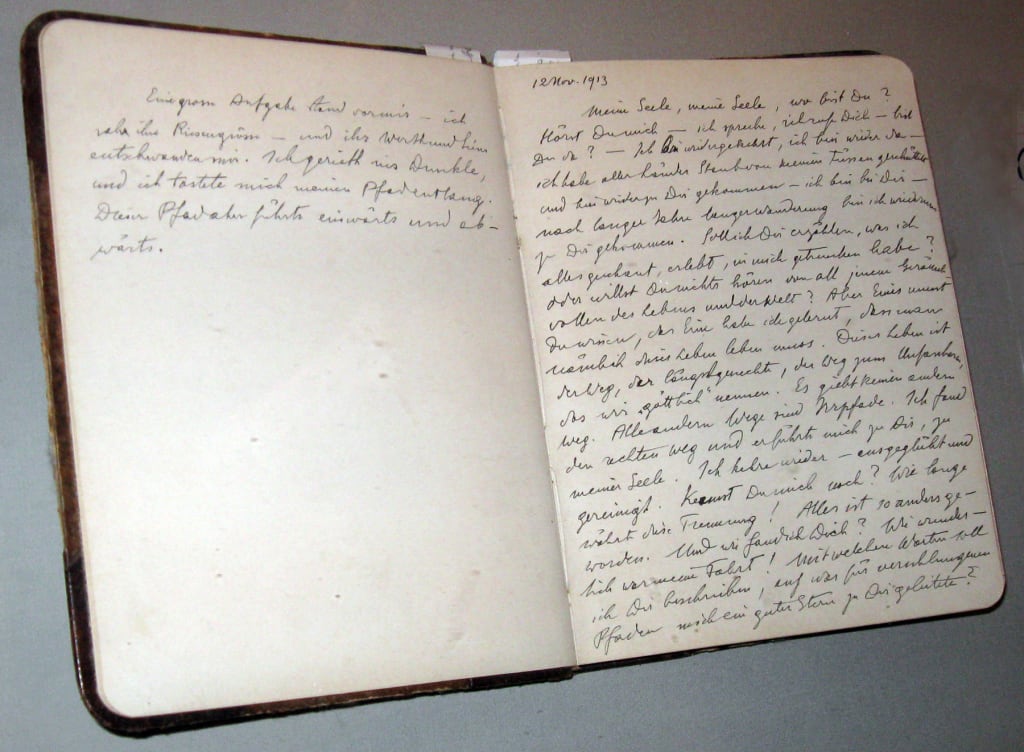 Eine grosse Aufgabe stand vor mir — ich
sah ihre Riesengrösse — und ihr Werth und Sinn
entschwanden mir. Ich gerieth ins Dunkle,
und ich tastete mich meinen Pfad entlang.
Dieser Pfad aber führte einwärts und ab-
wärts.
12 Nov. 1913
Meine Seele, meine Seele, wo bist Du?
Hörst Du mich — ich spreche, ich rufe Dich — bist
Du da? — Ich bin wiedergekehrt, ich bin wieder da —
ich habe aller Länder Staub von meinen Füssen geschüttelt
und bin wieder zu Dir gekommen — ich bin bei Dir —
nach langer Jahre langer Wanderung bin ich wieder
zu Dir gekommen. Soll ich Dir erzählen, was ich
alles geschaut, erlebt, in mich getrunken habe?
oder willst Du nichts hören von all jenem Geräusch-
vollen des Lebens und der Welt? Aber Eines musst
Du wissen, das Eine habe ich gelernt, dass man
nämlich dieses Leben leben muss. Dieses Leben ist
der Weg, der längst gesuchte, der Weg zum Unfassbaren,
das wir „göttlich" nennen. Es giebt keinen andern
Weg. Alle andern Wege sind Irrpfade. Ich fand
den rechten Weg und er führte mich zu Dir, zu
meiner Seele. Ich kehre wieder — ausgeglüht und
gereinigt. Kennst Du mich noch? Wie lange
währte diese Trennung! Alles ist so anders ge-
worden. Und wie fand ich Dich? Wie wunder-
lich war meine Fahrt! Mit welchen Worten soll
ich Dir beschreiben, auf was für verschlungenen
Pfaden mich ein guter Stern zu Dir geleitete?